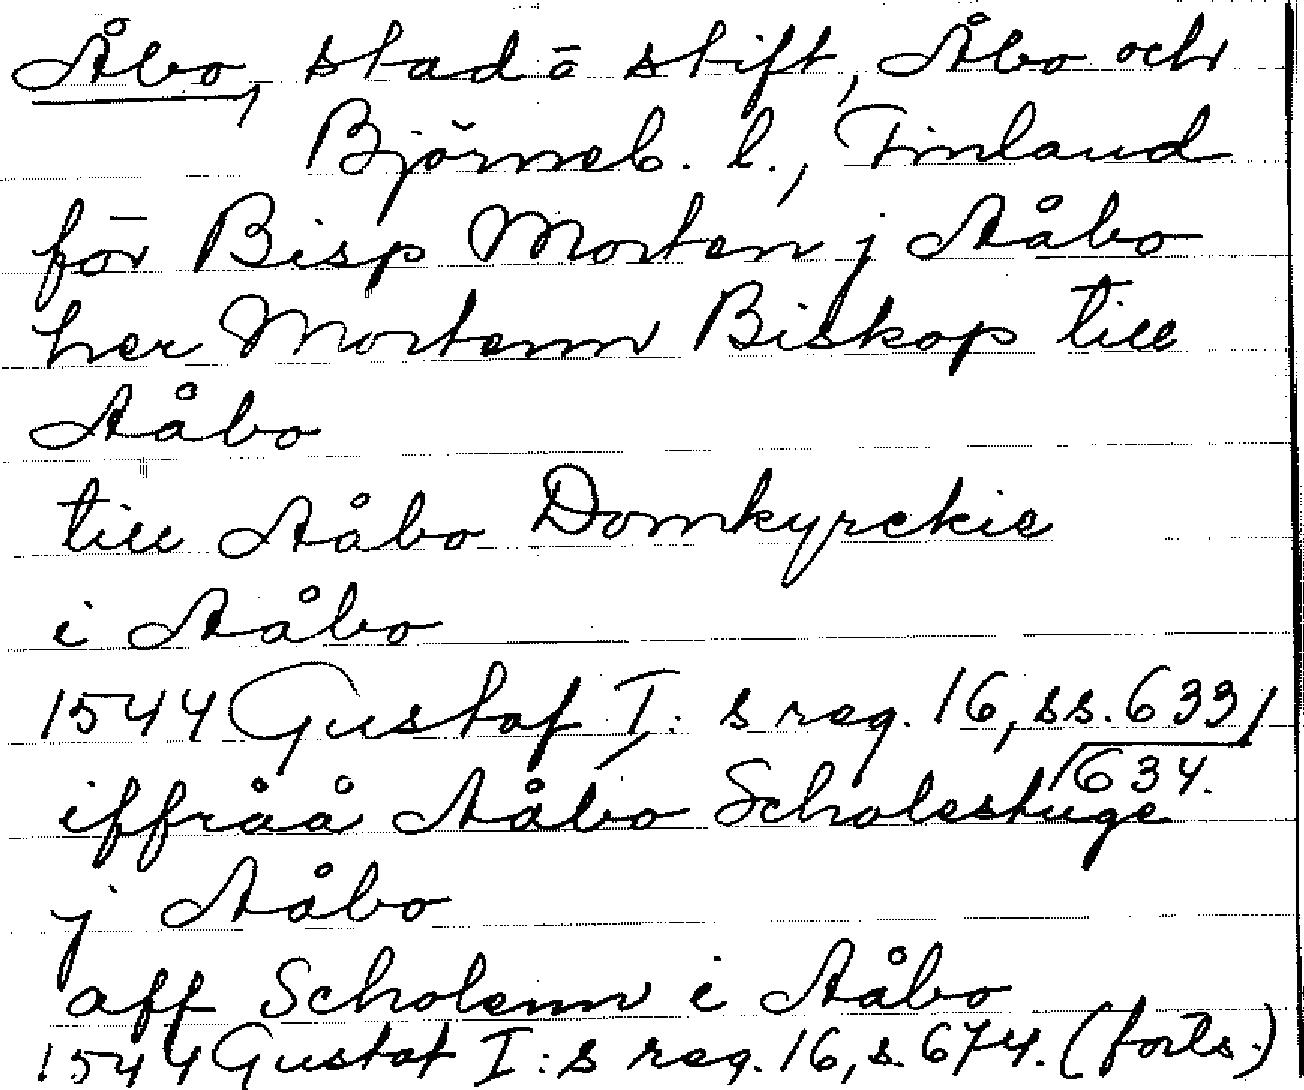 Åbo, stad o stift, Åbo och
Björneb. l., Finland
för Bisp Morten j Aåbo
her Mortenn Biskop till
Aåbo
till Aåbo Domkyrckie
i Aåbo
1544 Gustaf I: s reg. 16, ss. 633,
634.
iffråå Aåbo Scholestuge
j Aåbo
aff Scholenn i Aåbo
1544 Gustaf I: s reg. 16, s. 674. (forts.)